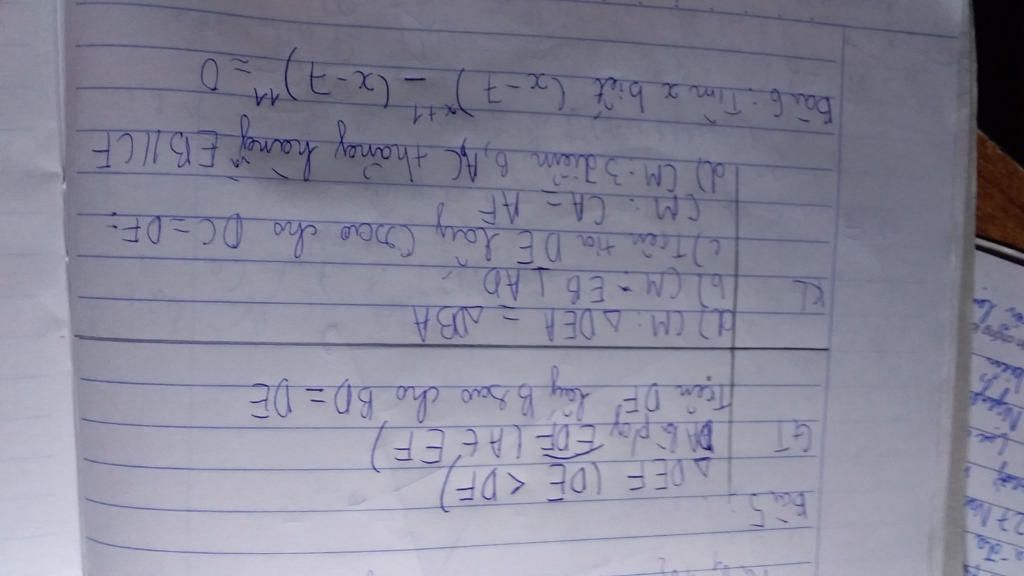 Bài 5:
△DEF (DE < DF)
GT DA là p/g EDF (A ∈ EF)
Trên DF lấy B sao cho BD = DE
a) CM: △DEA = △DBA
KL b) CM: EB ⊥ AD
c) Trên tia DE lấy C sao cho DC = DF.
CM: CA = AF
d) CM: 3 điểm B, A, C thẳng hàng, EB // CF
Bài 6: Tìm x biết (x-7)^{x+1} - (x-7)^{11} = 0